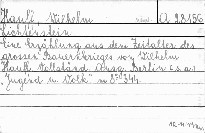 Hauff, Wilhelm A 22.156
Lichtenstein
Eine Erzählung aus dem Zeitalter des
grossen Bauernkrieges von Wilhelm
Hauff. Vollständ. Ausg. Berlin o.J.
"Jugend u. Volk" 8° 344